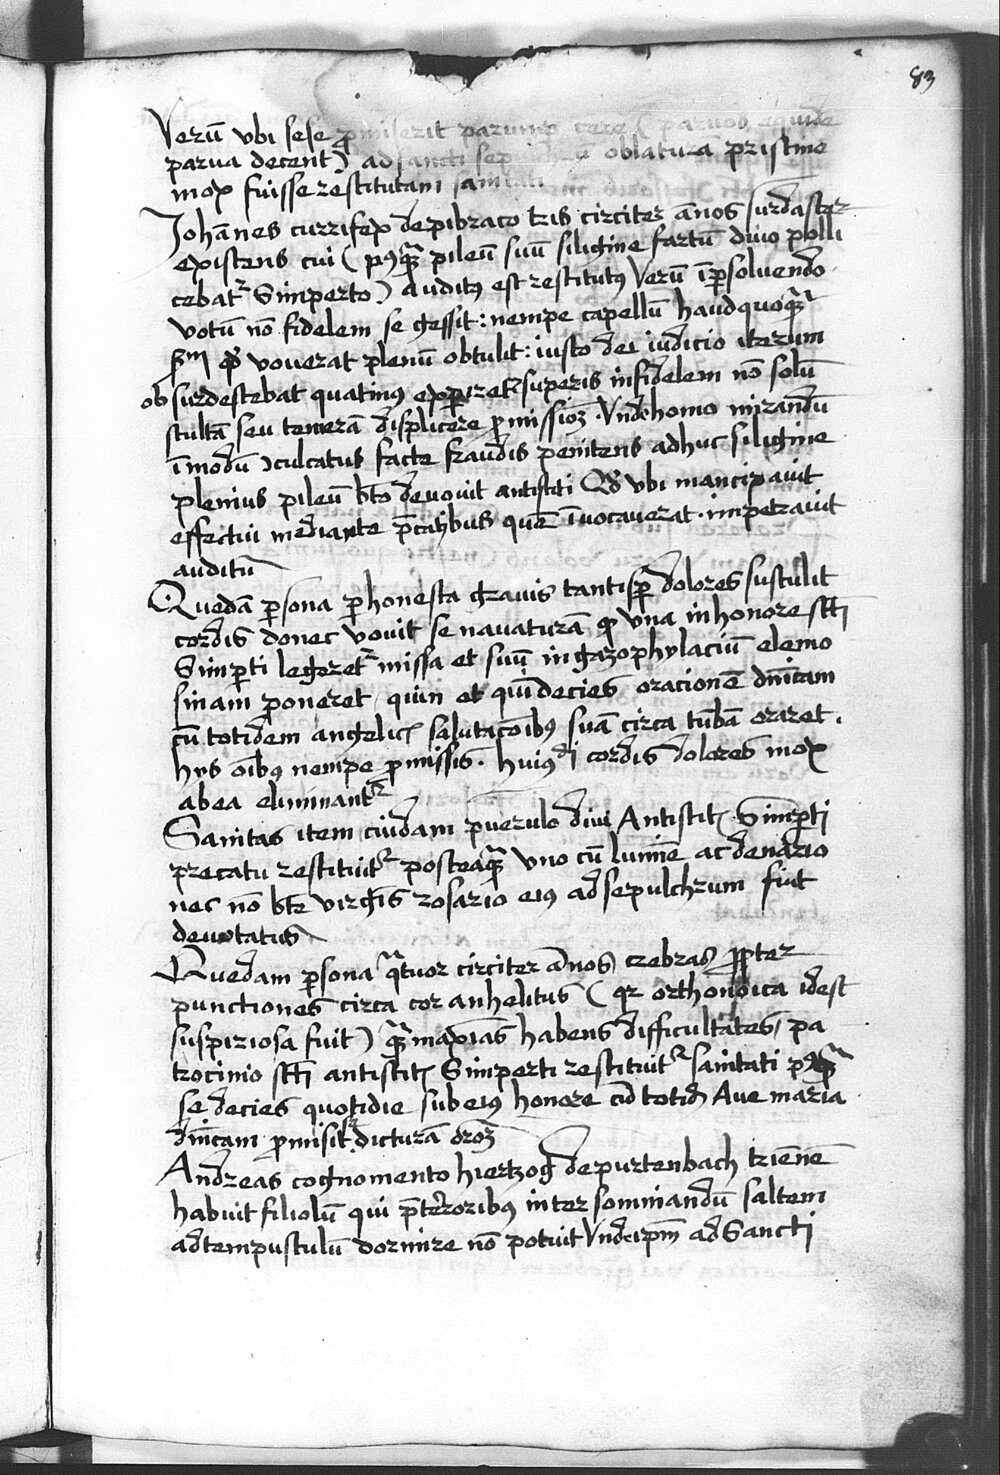 83
Verū vbi sese promiserit parumper cere (paruos equide
parua decent) ad sancti sepulchrū oblaturā pristine
mox fuisse restitutam sanitati
Johānes currifex de pibraco tris circiter ānos surdaster
existens cui (pꝰqꝫ pileū suū siligine fartū diuo polli
cebatr Simperto) auditꝰ est restitutꝰ Verū ī persoluendo
votū nō fidelem se gessit: nempe capellū haudquoqꝫ
ꝓm̄ qd vouerat plenū obtulit: iusto dei iudicio iterum
obsurdestebat quatinꝰ experiretr superis infidelem nō solū
stultā seu temerā displicere promissioꝫ. Vnde homo mirandū
ī modū ɔculcatus facte fraudis penitens adhuc siligine
plenius pileū bto deuouit antistiti Qd vbi mancipauit
effectui mediante p̄catibus quē īuocauerat. impetrauit
auditū
Quedā persona perhonesta grauis tantisper dolores sustulit
cordis donec vouit se nauaturā qd vna in honore scti
Simperti legeretr missa et suū in gazophylaciū elemo
sinam poneret quin et quīdecies oracionē dnīcam
cū totidem angelicis salutacōibꝰ suā circa tūbā oraret.
hys oībꝰ nempe promissis. huiꝰdi cordis dolores mox
ab ea eliminantr
Sanitas item cuidam puerulo diui Antistitis Simperti
precatu restituitr posteaqꝫ vno cū lumīe ac denario
nec nō bte virgis rosario eiꝰ ad sepulchrum fuit
deuotatus
Quedam persona qtuor circiter ānos crebras propter
punctiones circa cor anhelitus (qr orthonoica idest
suspiriosa fuit) qꝫ maxīas habens difficultates, pa
trocinio scti antistitis Simperti restituitr sanitati pꝰqꝫ
se decies quotidie sub eiꝰ honore cū totid Aue maria
dnīcam promisit dicturā oroꝫ
Andreas cognomento hiertzog de purtenbach trienē
habuit filiolū qui p̄ terroribꝰ inter somniandū saltem
ad tempustulū dormire nō potuit Vnde ipm̄ ad Sancti